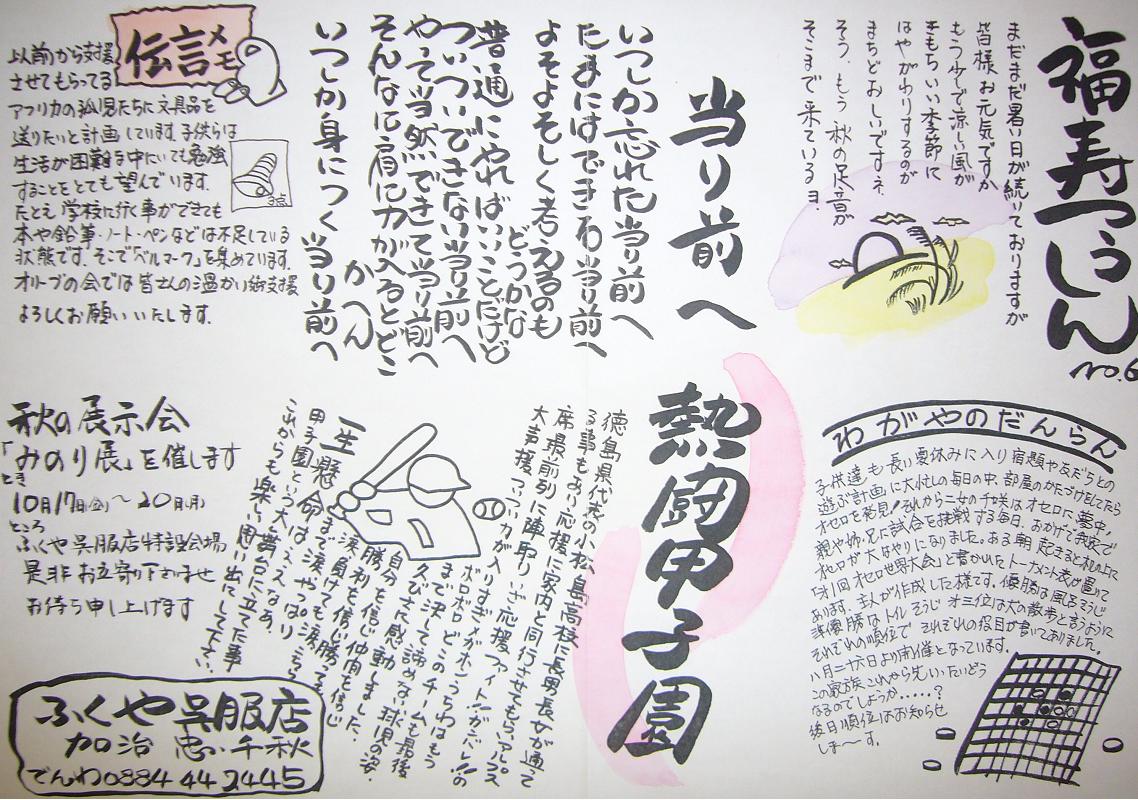 福寿つうしん
no.6
まだまだ暑い日が続いておりますが
皆様お元気ですか
もう少しで涼しい風が
きもちいい季節に
はやがわりするのが
まちどおしいですネ
そう、もう秋の足音が
そこまで来ているヨ.
当り前へ
いつしか忘れた当り前へ
たまにはできる当り前へ
よそよそしく考えるのも
どうかな
普通にやればいいことだけど
ついついできない当り前へ
やって当然できて当り前へ
そんなに肩に力が入るとどこ
かへん
いつしか身につく当り前へ
伝言メモ
以前から支援
させてもらってる
アフリカの孤児たちに文具品を
送りたいと計画しています。子供らは
生活が困難な中たいても勉強
することをとても望んでいます。
たとえ学校に行く事ができても
本や鉛筆・ノート・ペンなどは不足している
状態です。そこで「ベルマーク」を集めています。
オリーブの会では皆さんの温かい御支援
よろしくお願いいたします。
わがやのだんらん
子供達も長い夏休みに入り宿題や友だちとの
遊ぶ計画に大忙しの毎日の中、部屋のかたづけをしてたら
オセロを発見!それから二女の千咲はオセロに夢中。
親や姉・兄に試合を挑戦する毎日。おかげで我家で
オセロが大はやりになりました。ある朝起きると机の上に
「オ1回オセロ世界大会」と書かれたトーナメント表が置いて
あります。主人が作成した様です。優勝は風呂そうじ
準優勝はトイレそうじオ三位は犬の散歩と言うように
それぞれの順位でそれぞれの役目が書いてありました。
八月二十六日より開催となっています。
この家族これから先いったいどう
なるのでしょうか……?
後日順位はお知らせ
しま〜す。
熱闘甲子園
徳島県代表の小松島高校に長男長女が通って
る事もあり応援に家内と同行させてもらいアルプス
席最前列に陣取りいざ応援、ファイト!!ガンバレ!!の
大声援、ついつい力が入りすぎメガホン、うちわはもう
ボロボロ、どこのチームも最後
まで決して諦めない球児の姿、
久びさに感動しました。
自分を信じ仲間を信じ
勝利を信じ勝って
涙、負けても涙
一生懸命まで涙、涙やっぱり
甲子園という大はええなぁ。
これからも楽しい思い出にして下さい。
秋の展示会
「みのり展」を催します
とき
10月17日(金)〜20日(月)
ところ
ふくや呉服店特設会場
是非お立寄り下さいませ
お待ち申し上げます
ふくや呉服店
加治 忠・千秋
でんわ0884 44 2445